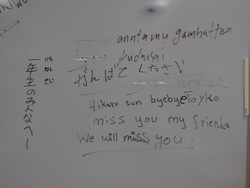 一年生のみんなへ
anntamu gambatte
kudasai
がんばて ください
Hikaru son byebye
miss you my friends
We will miss you!